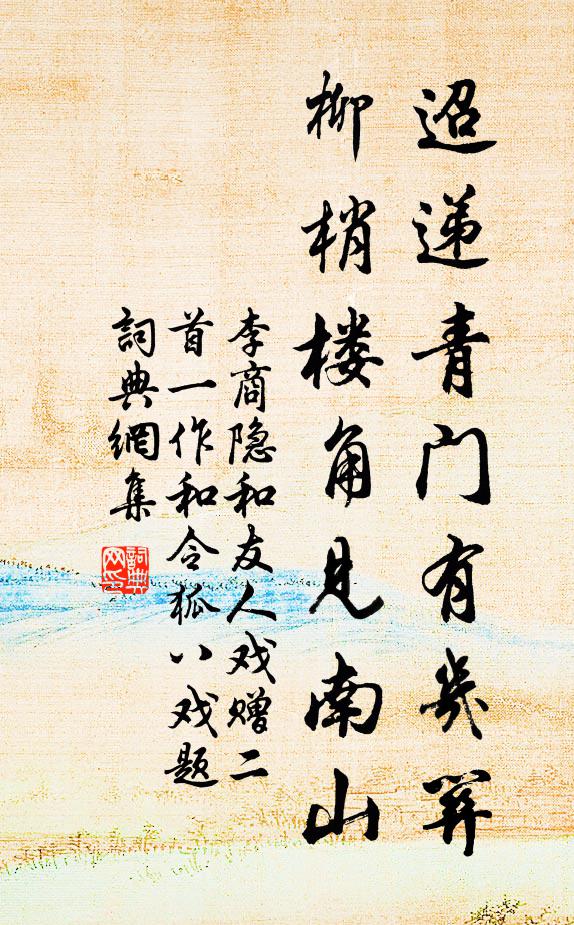 迢递青门有幾关
柳梢楼角见南山
李商隐和友人戏赠二
首一作和令狐八戏题
詞典網集
詞典网印